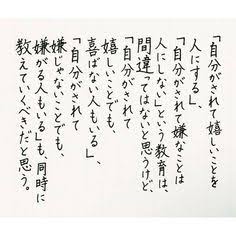 「自分がされて嬉しいことを
人にする」、
「自分がされて嫌なことは
人にしない」という教育は、
間違ってはないと思うけど、
「自分がされて
嬉しいことでも、
喜ばない人もいる」、
「自分がされて
嫌じゃないことでも、
嫌がる人もいる」も、同時に
教えていくべきだと思う。